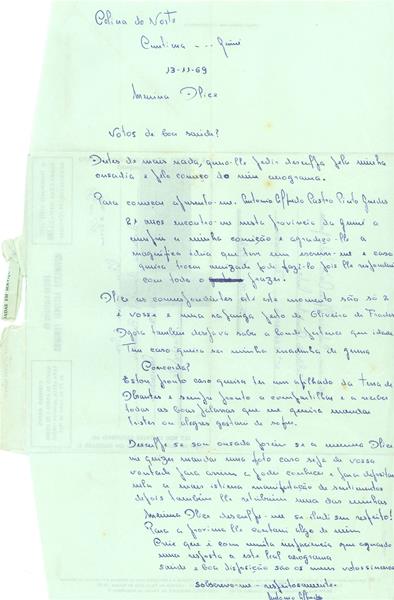 Colina do Norte
Cuntima --- Guiné
13-11-69
Menina Dlice
Votos de boa saúde?
Dntes de mais nada, quero-lhe pedir desculpa pela minha
ousadia e pelo começo do meu aerograma.
Para começar apresento-me. Antonio Alfredo Castro Pinto Guedes
21 anos encontro-me nesta provincia da Guiné a
cumprir a minha comissão e agradeço-lhe a
magnifica ideia que teve em escrever-me e caso
queira trocar amizade pode fazê-lo pois lhe responderei
com todo o prazer.
Dlice as correspondentes até este momento são só 2
é vossê e uma rapariga perto de Oliveira de Frades
Dgora tambem desejava saber a
que idade
Tem caso queira ser minha madrinha de guerra
Concorda?
Estou pronto caso queira ter um afilhado da terra de
e sempre pronto a compartilhar e a receber
todas as boas palavras que me queira mandar
tristes ou alegres gostarei de
Desculpe se sou ousado porem se a menina Dlice
me quizer mandar uma foto caso seja de vossa
vontade para assim a poder conhecer e para depositar
nela a mais intima manifestação de sentimentos
depois tambem lhe retribuirei uma das minhas
Menina Dlice desculpe-me
respeito!
Para a proxima lhe contarei algo de mim
Creia que é com muita impaciencia que aguardo
uma resposta a este leal aerograma
saude e boa disposição são os meus votos sinceros
subscrevo-me - respeitosamente
Antonio Alfredo